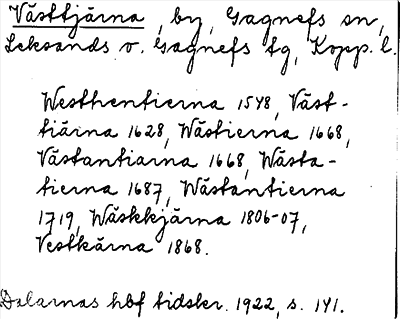 Västtjärna, by, Gagnefs sn,
Leksands o. Gagnefs tg, Kopp. l.
Westhentierna 1548, Väst-
tiärna 1628, Wästierna 1668,
Västantiarna 1668, Wästa-
tierna 1687, Wästantierna
1719, Wäskkjärna 1806-07,
Vestkärna 1868.
Dalarnas hbf tidskr. 1922, s. 141.